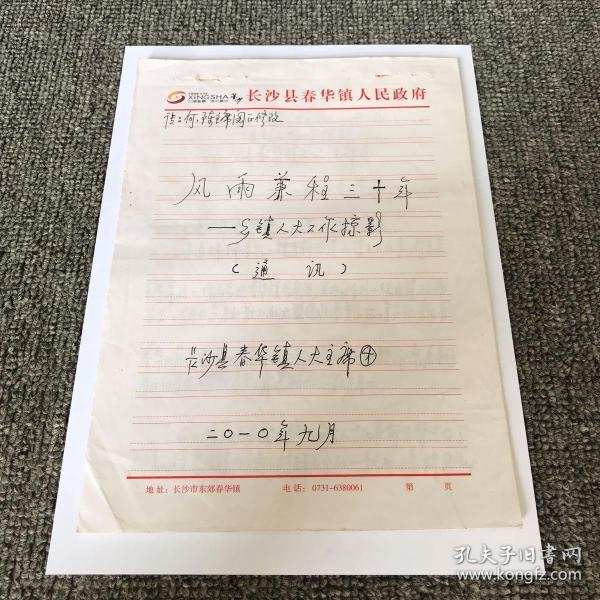 XINGSHA
长沙县春华镇人民政府
风雨兼程三十年
—乡镇人大工作掠影
（通讯）
长沙县春华镇人大主席团
二〇一〇年九月
地址：长沙市东郊春华镇 电话：0731-6380061 第 页
孔夫子旧书网
www.kongfz.com